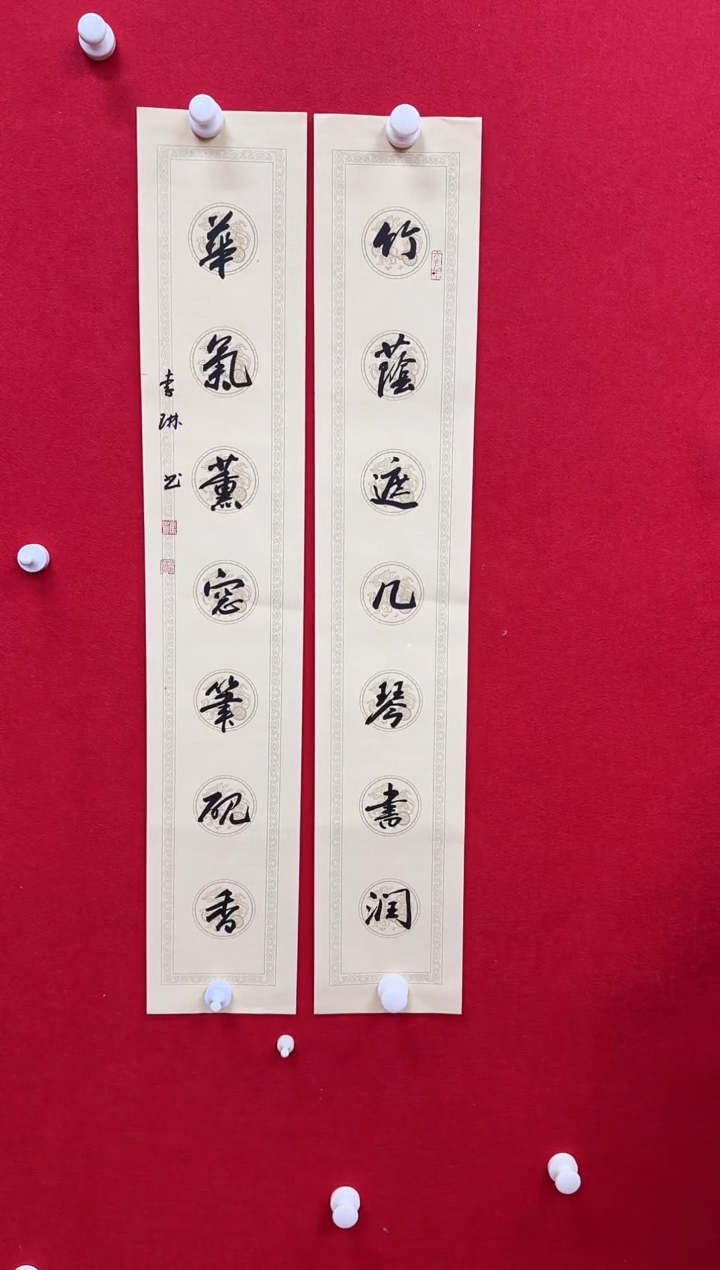 竹蔭遮几琴書潤
華氣薰窓筆硯香
李琳书